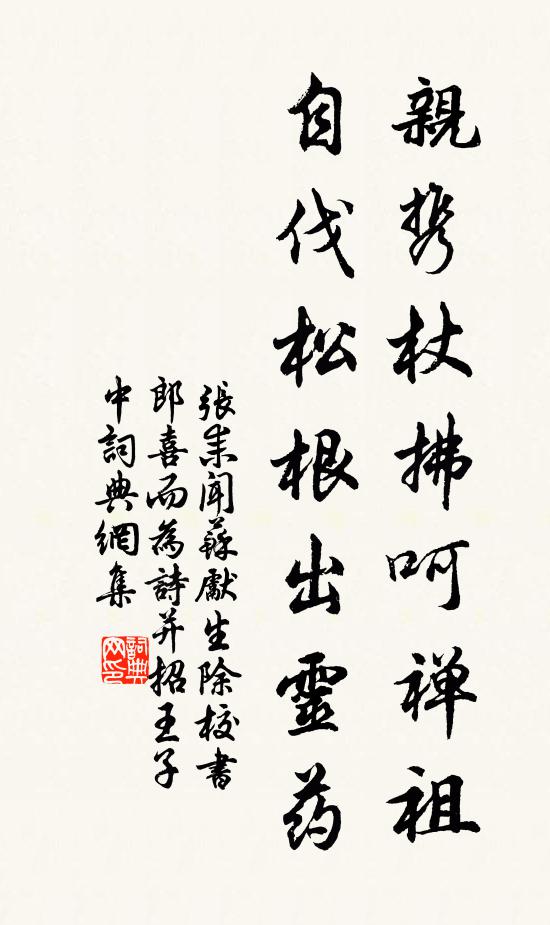 親携杖拂呵禅祖
自伐松根出靈药
張耒聞蘇獻生除校書
郎喜而為詩并招王子
中詞典網集
詞典网印